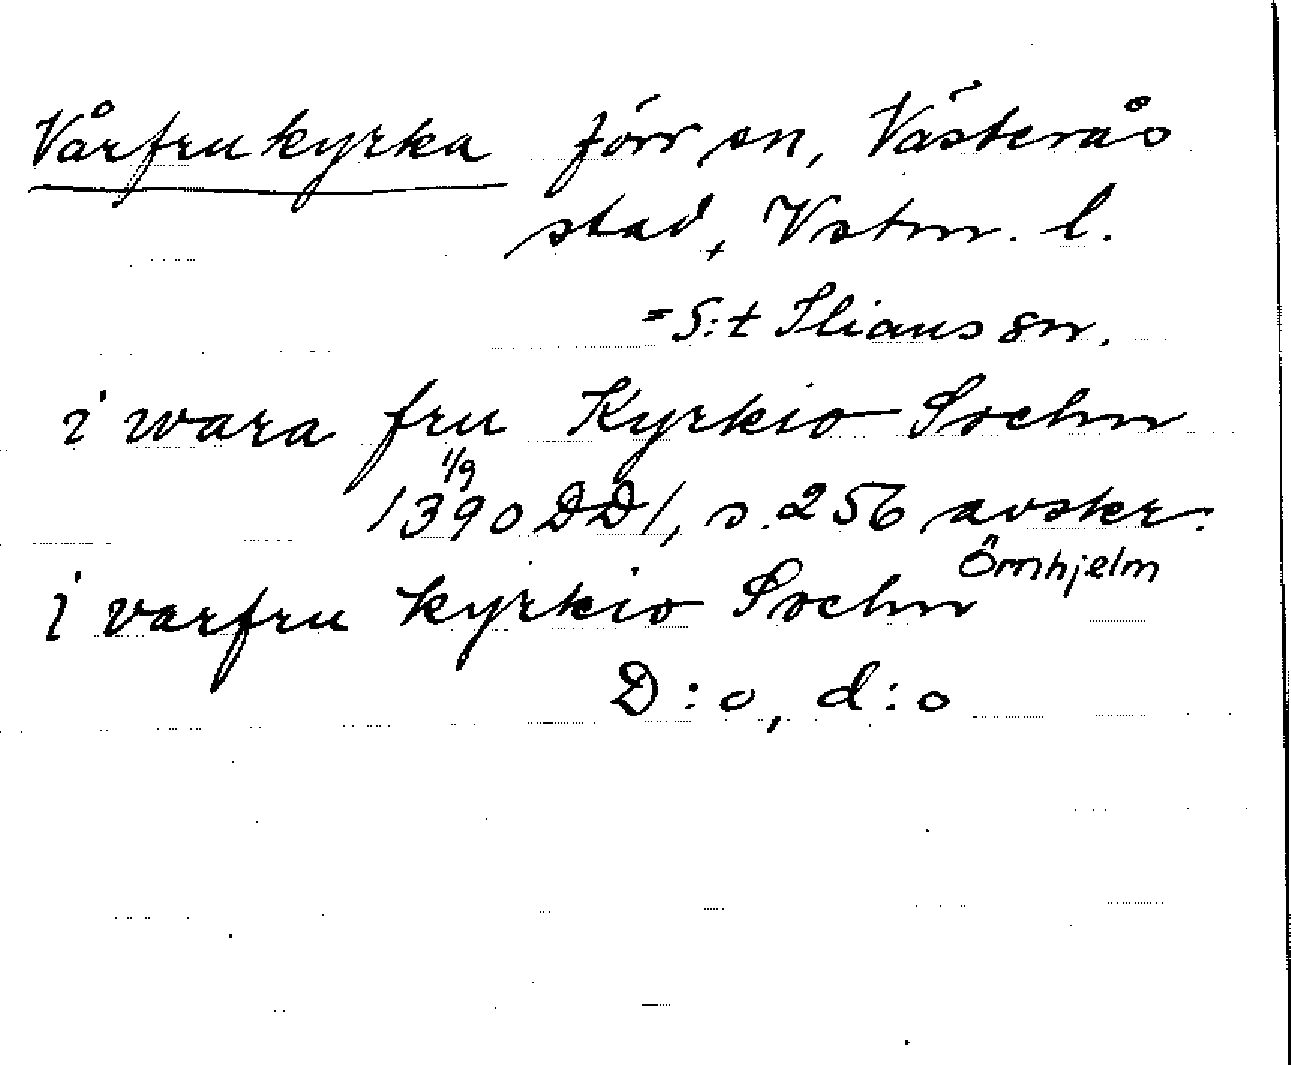 Vårfrukyrka förr sn, Västerås
stad, Vstm. l.
= S:t Ilians sn.
i wara fru Kyrkio Sochn
1/9
1390 DD1, s. 256 avskr.
Örnhjelm
i varfru kyrkio Sochn
D:o, d:o